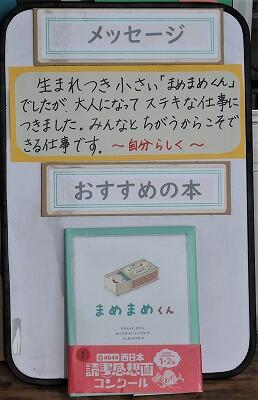 メッセージ
生まれつき小さい「まめまめくん」
でしたが、大人になってステキな仕事に
つきました。みんなとちがうからこそで
きる仕事です。〜自分らしく〜
おすすめの本
まめまめくん
第64回 西日本
読書感想画
コンクール
1・2年